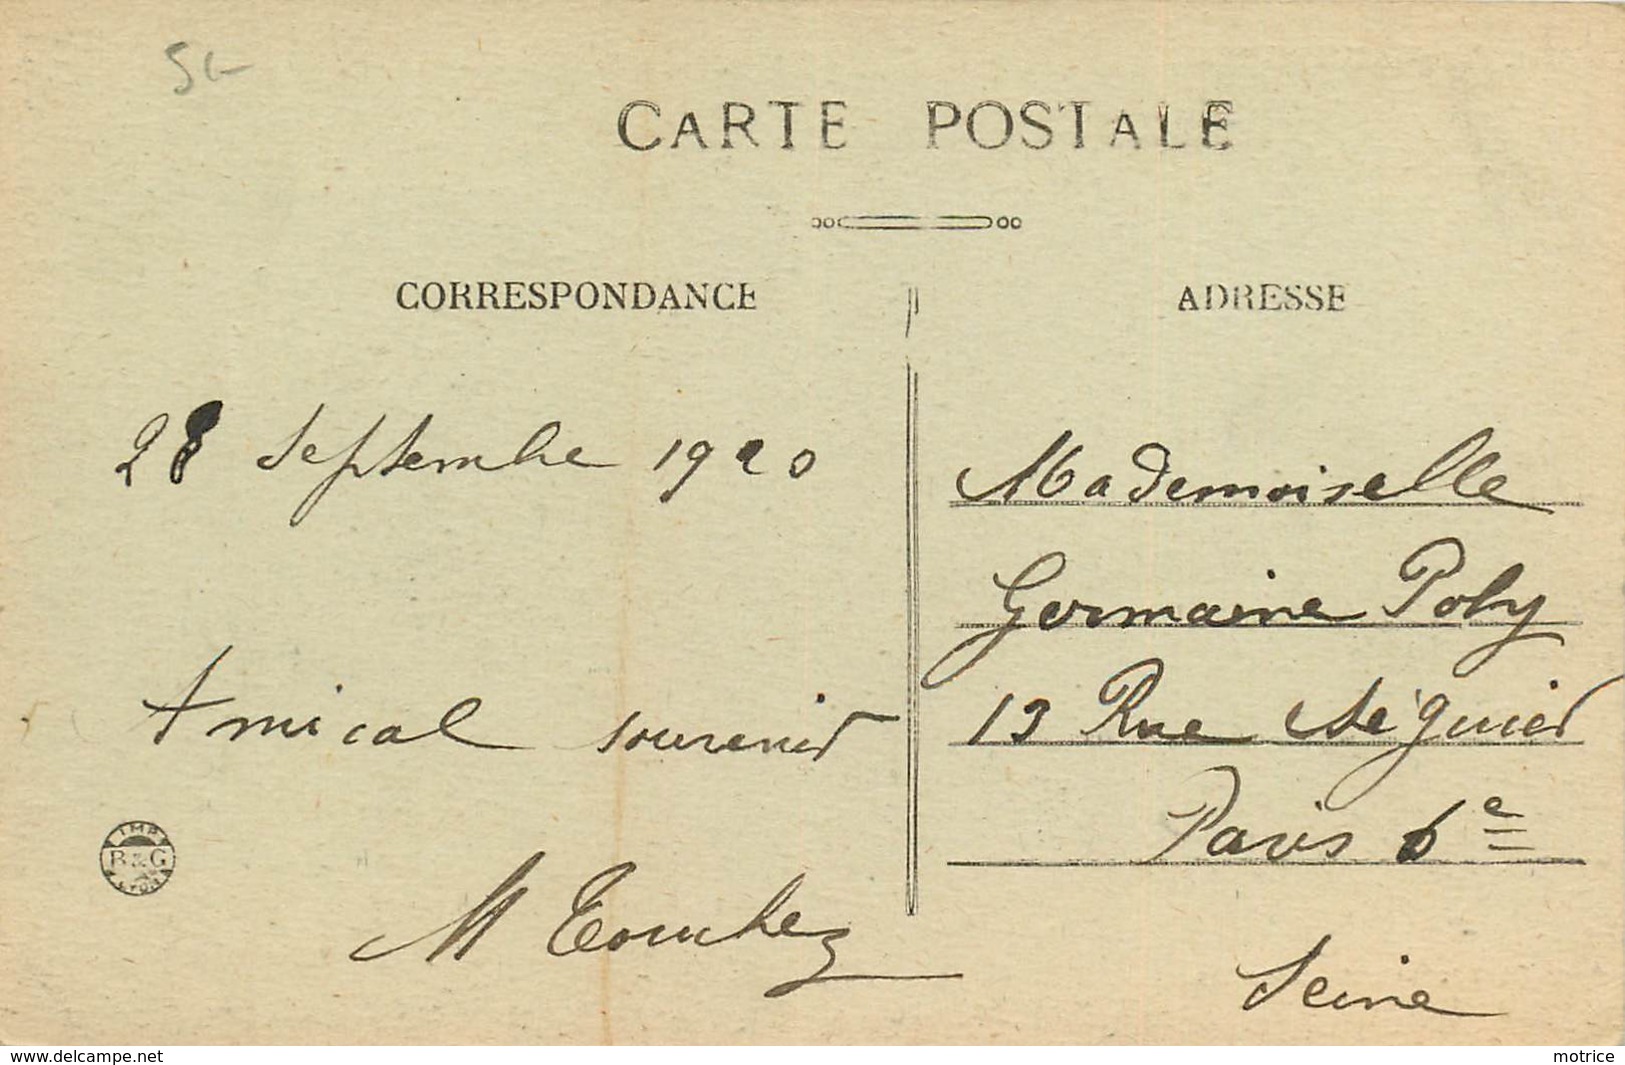 CARTE POSTALE
CORRESPONDANCE
ADRESSE
28 Septembre 1920
Amical souvenir
Mademoiselle
Germaine Poly
13 Rue Séguier
Paris 6e
Seine
IMP.
B & G
LYON
www.delcampe.net
motrice